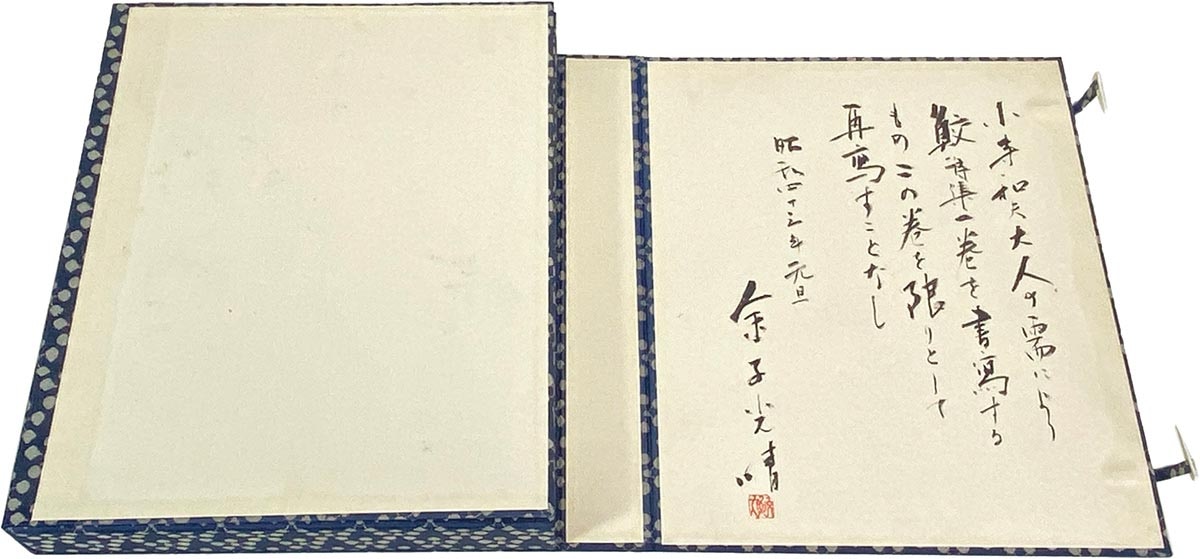 小寺・和夫大人の需により
鮫詩集一巻を書寫する
もの この巻を限りとして
再寫すことなし
昭和四十三年元旦
金子光晴